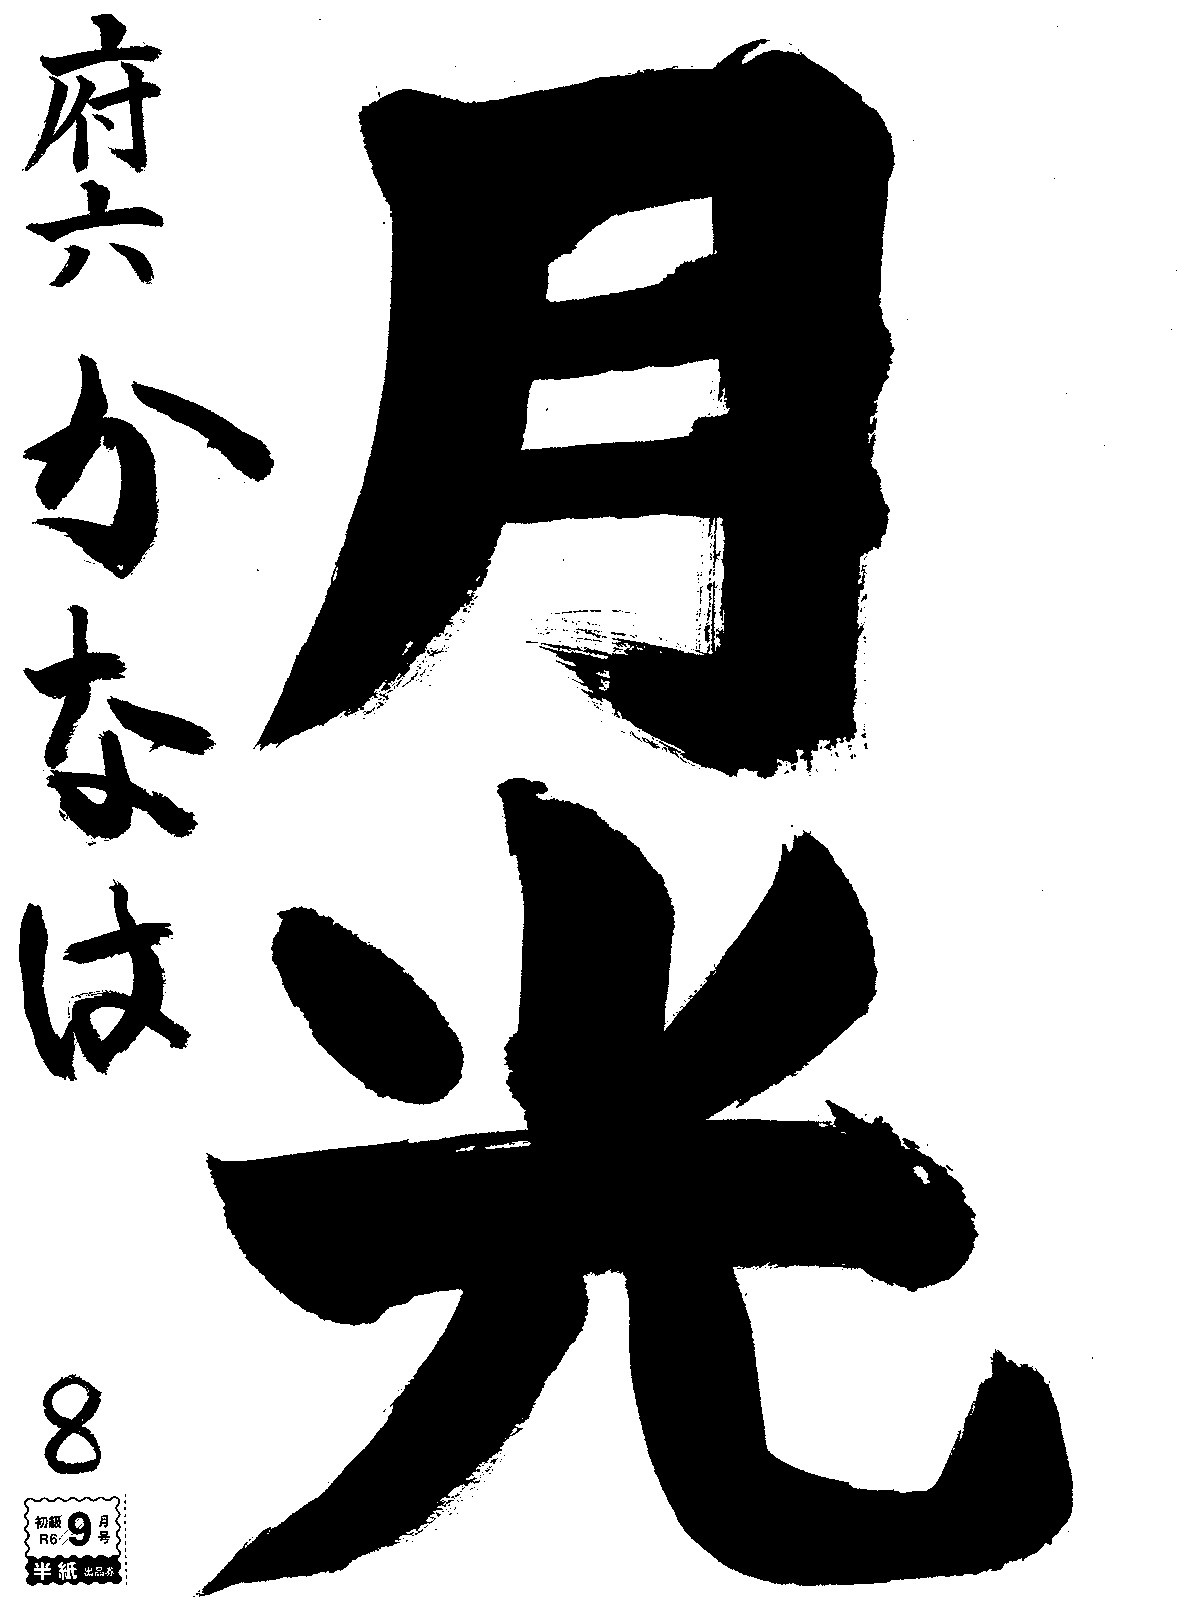 月光
府六 かなは
8
初級 R6 9月号
半紙 出品券